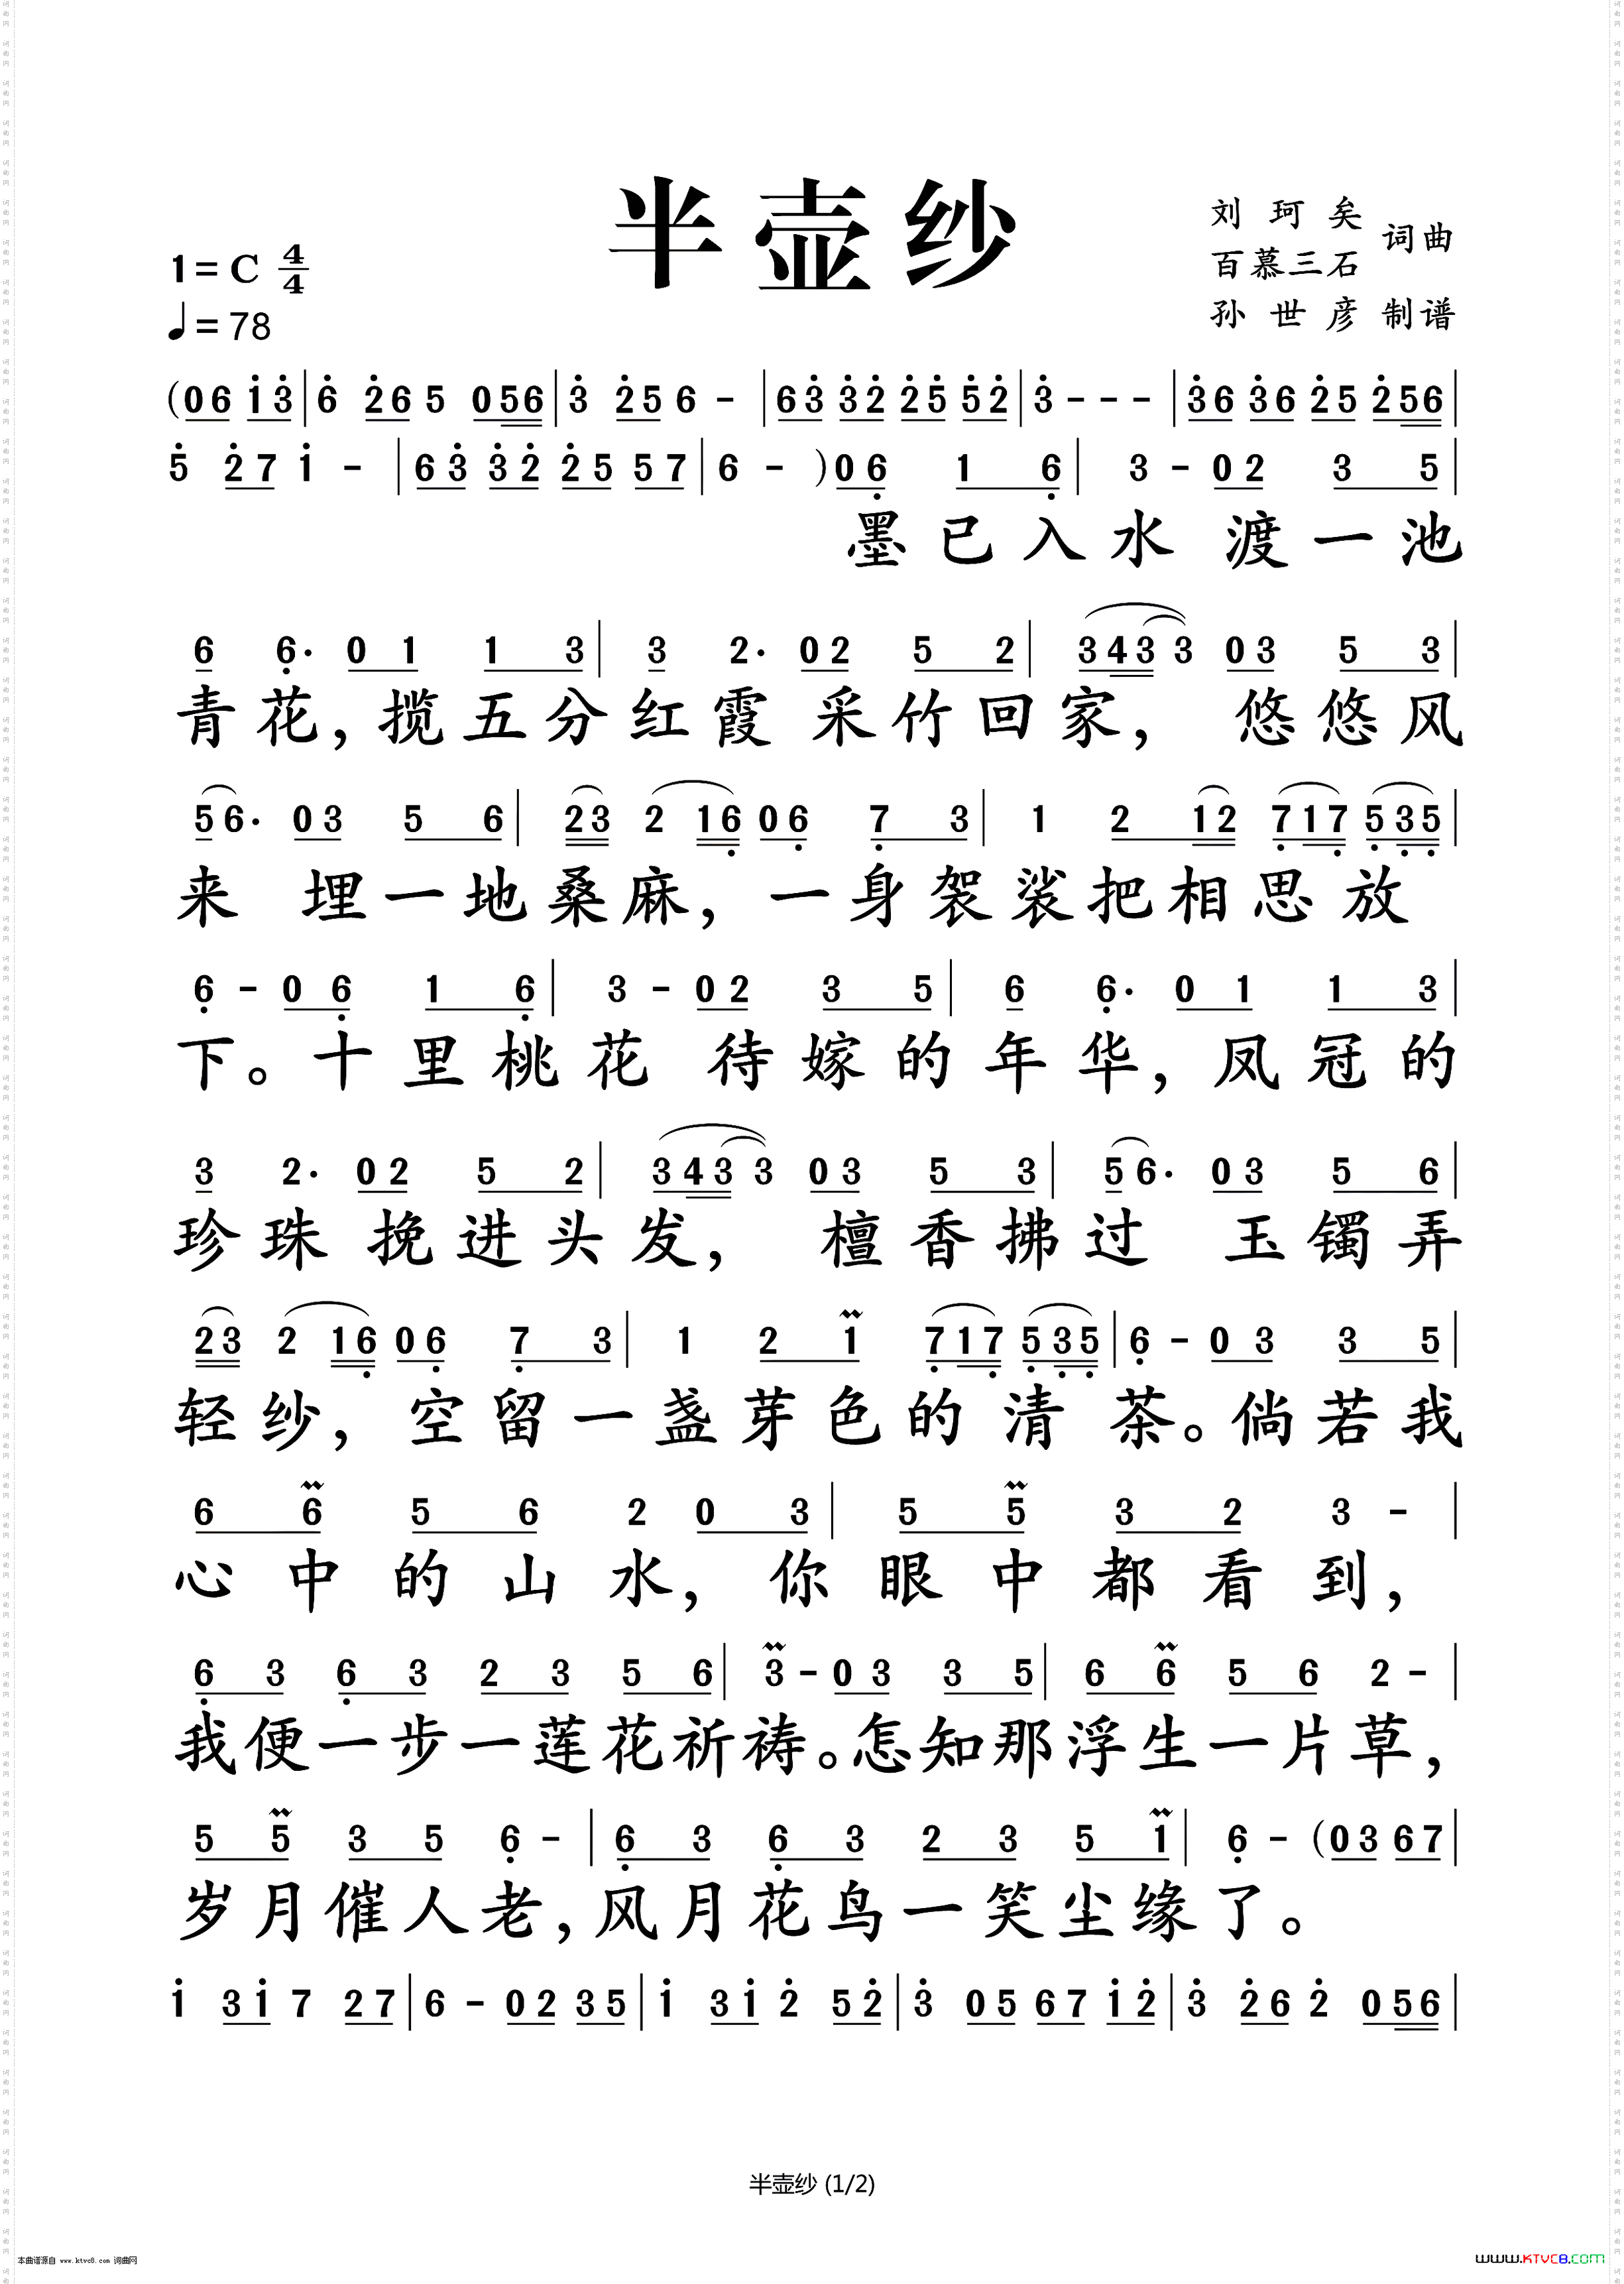 半壶纱
1=C 4/4
♩=78
刘珂矣
百慕三石 词曲
孙世彦 制谱
(06 1̇3̇|6̇ 2̇6 5 056|3̇ 2̇5 6 -|63̇ 3̇2̇ 2̇5̇ 5̇2̇|3̇ - - -|3̇6 3̇6 2̇5 2̇56|
5̇ 2̇7 1̇ -|63̇ 3̇2̇ 2̇5 57|6 - )06̣ 1 6̣|3 - 02 3 5|
墨已入水 渡一池
6 6̣· 0 1 1 3|3 2· 02 5 2|343 3 03 5 3|
青花,揽五分红霞 采竹回家, 悠悠风
56· 03 5 6|23 2 16̣ 06̣ 7̣ 3|1 2 12 7̣17̣ 5̣3̣5̣|
来 埋一地桑麻,一身袈裟把相思放
6̣ - 0 6̣ 1 6̣|3 - 02 3 5|6 6̣· 0 1 1 3|
下。十里桃花 待嫁的年华,凤冠的
3 2· 02 5 2|343 3 03 5 3|56· 03 5 6|
珍珠 挽进头发, 檀香拂过 玉镯弄
23 2 16̣ 06̣ 7̣ 3|1 2 1 7̣17̣ 5̣3̣5̣|6̣ - 0 3 3 5|
轻纱,空留一盏芽色的清茶。倘若我
6 6 5 6 2 0 3|5 5 3 2 3 -|
心中的山水,你眼中都看到,
6̣ 3 6̣ 3 2 3 5 6|3 - 0 3 3 5|6 6 5 6 2 -|
我便一步一莲花祈祷。怎知那浮生一片草,
5 5 3 5 6̣ -|6̣ 3 6̣ 3 2 3 5 1|6̣ - (03 67|
岁月催人老,风月花鸟一笑尘缘了。
1̇ 31̇ 7 27|6 - 02 35|1̇ 31̇ 2̇ 52̇|3̇ 05 67 1̇2̇|3̇ 2̇6 2̇ 056|
半壶纱 (1/2)
本曲谱源自 www.ktvc8.com 词曲网
www.KTVC8.com